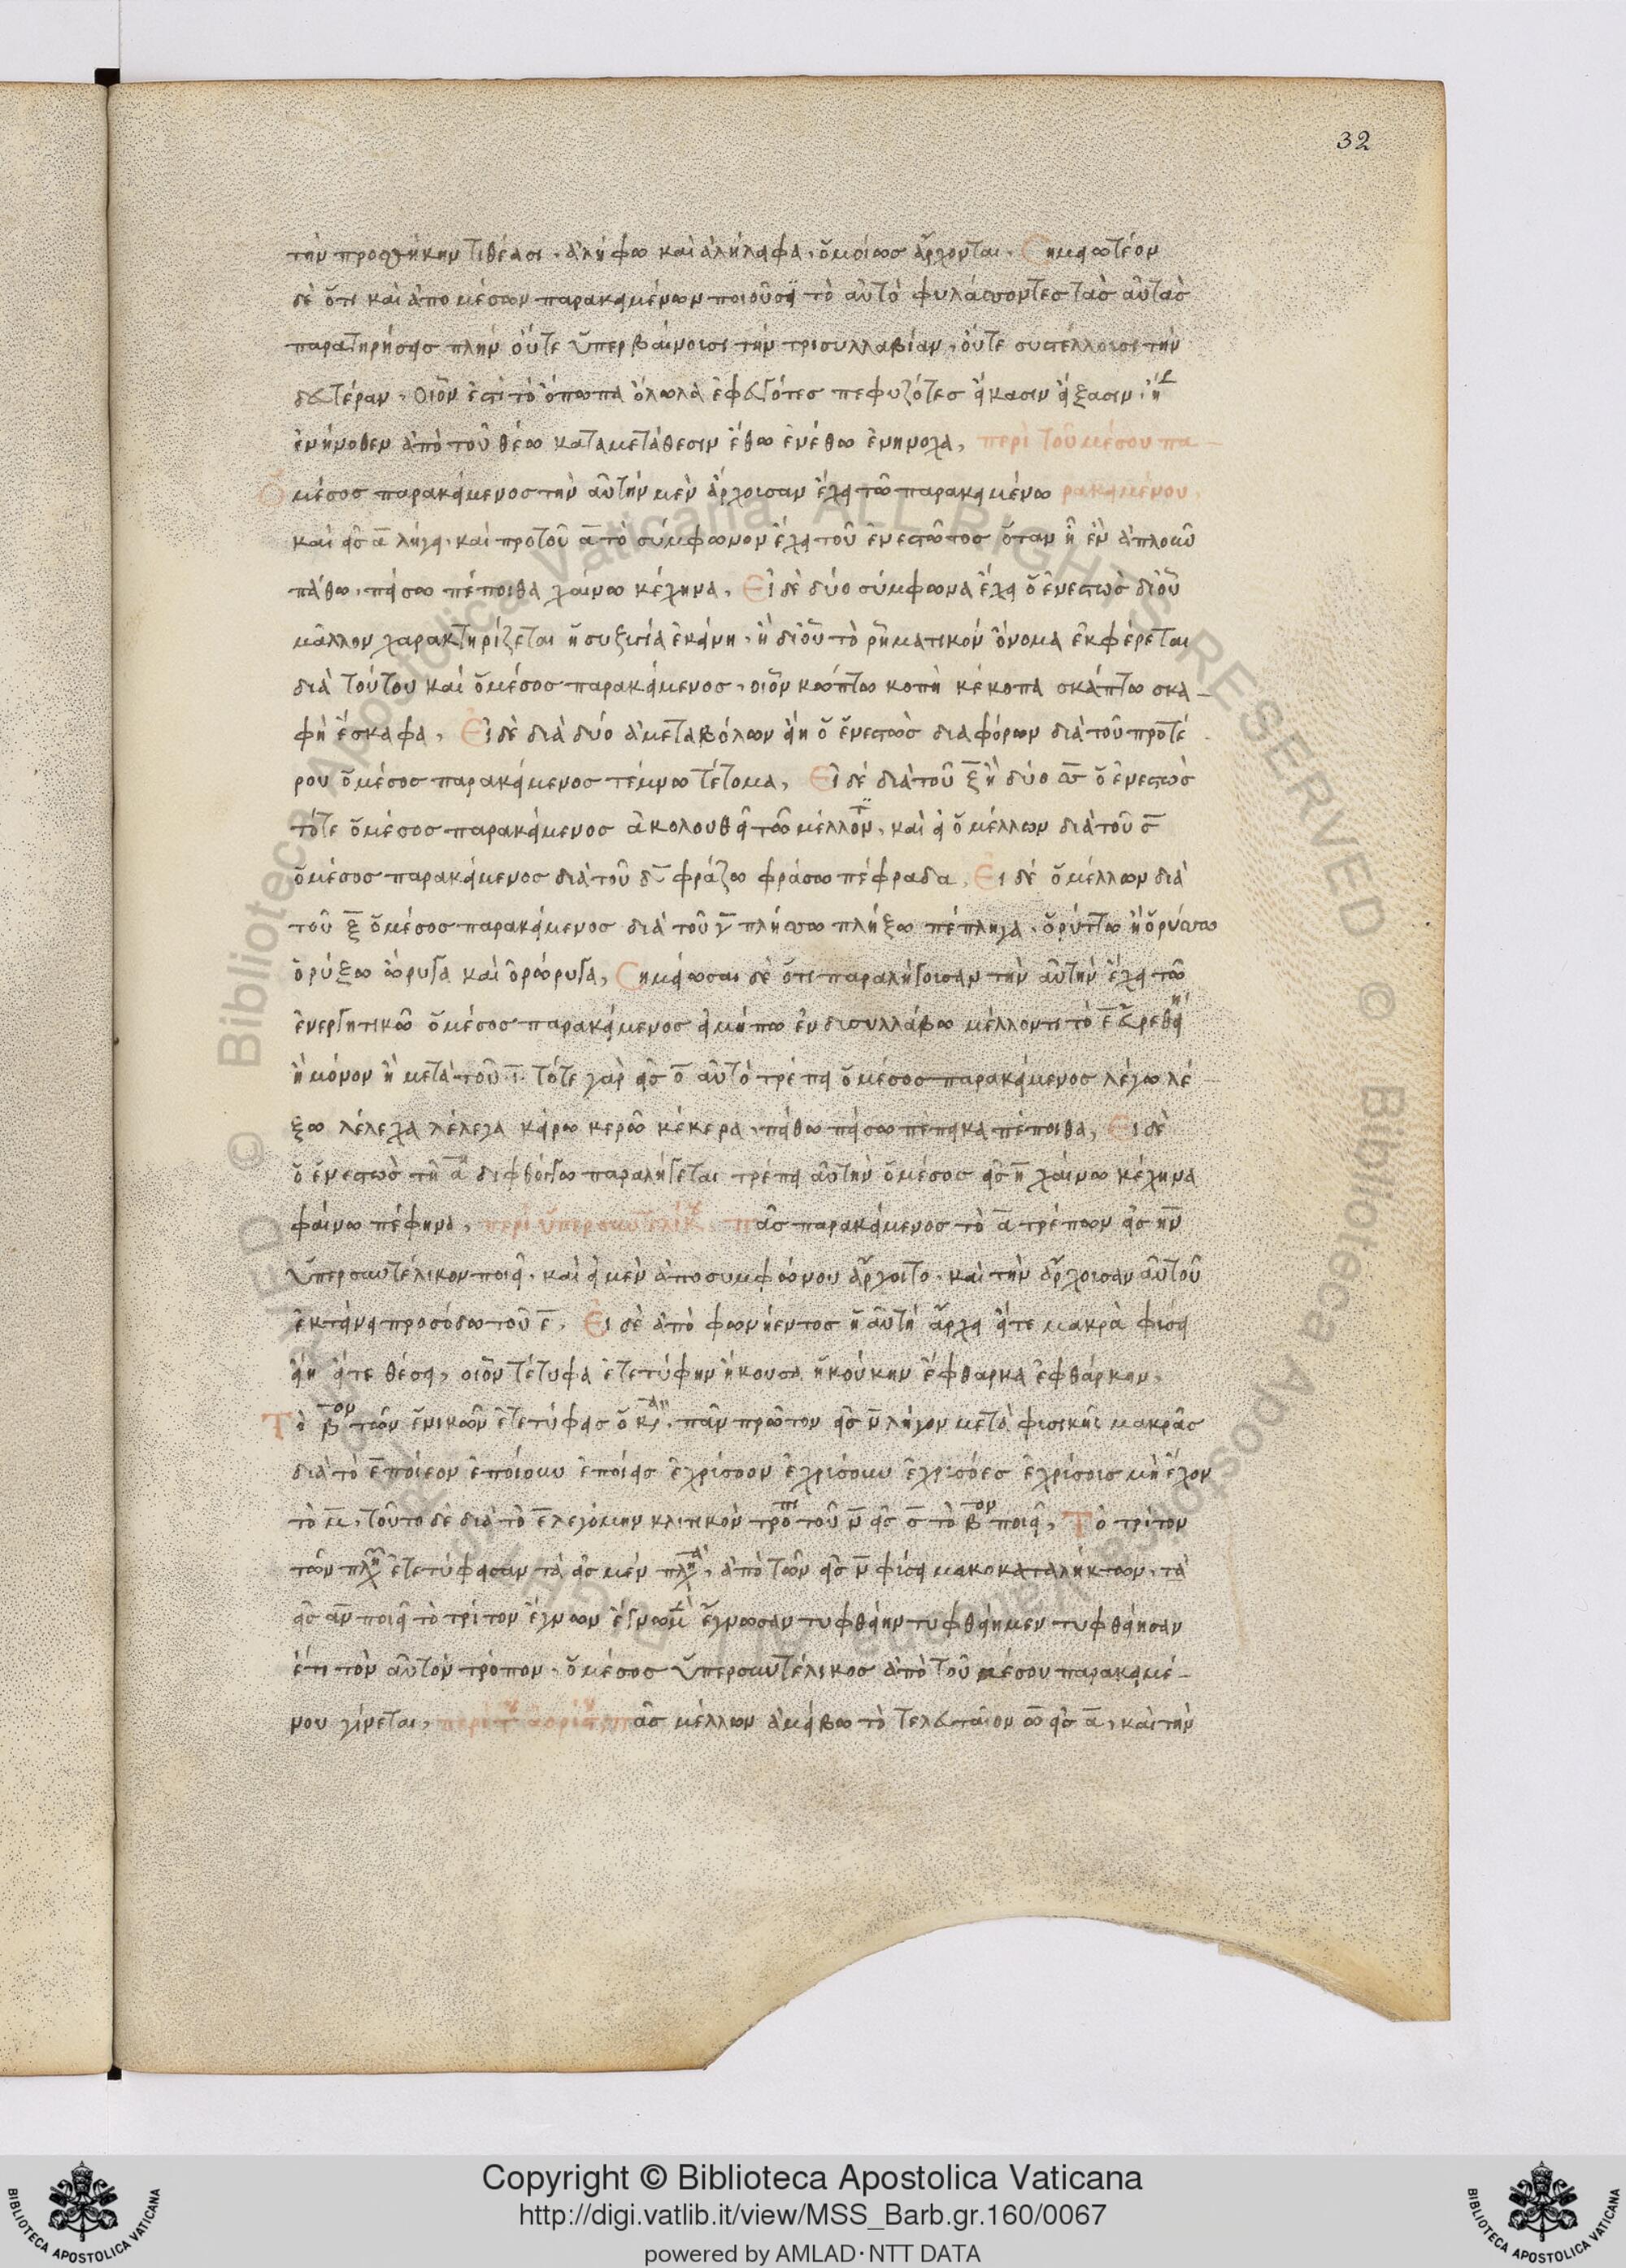 32
τὴν προσθήκην τιθέασι. ἀλήφω καὶ ἀλήλαφα. ὁμοίως ἄρχονται. Σημειωτέον
δὲ ὅτι καὶ ἀπο μέσων παρακειμένων ποιοῦσι τὸ αὐτὸ φυλάσσοντες τὰς αὐτὰς
παρατηρήσεις πλὴν οὔτε ὑπερβαίνουσι τὴν τρισυλλαβίαν, οὔτε συστέλλουσι τὴν
δευτέραν. οἷον ἐπὶ τὸ ὄπωπα ὄλωλα πεφυζότες εἴκασιν εἴξασιν
ἐνήνοθεν ἀπὸ τοῦ θέω κατα μετάθεσιν ἔθω ἐνέθω περὶ τοῦ μέσου πα-
Ὁ μέσος παρακείμενος τὴν αὐτὴν μὲν ἄρχουσαν ἔχει τῶ παρακειμένω ρακειμένου,
καὶ εἰς α λήγει. καὶ προ τοῦ α τὸ σύμφωνον ἔχει τοῦ ἐνεστῶτος ὅταν ἦ ἐν ἁπλοῦν
πείθω, πείσω πέποιθα χαίνω κέχηνα, Εἰ δὲ δύο σύμφωνα ἔχει ὁ ἐνεστὼς δι' οὗ
μᾶλλον χαρακτηρίζεται ἡ συζυγία ἐκείνη, ἢ δι' οὗ τὸ ῥηματικὸν ὄνομα ἐκφέρεται
διὰ τούτου καὶ ὁ μέσος παρακείμενος, οἷον κώπτω κοπὴ κέκοπα σκάπτω σκα-
φὴ ἔσκαφα, Εἰ δὲ διὰ δύο ἀμεταβόλων εἴη ὁ ἐνεστὼς διαφόρων διὰ τοῦ προτέ
ρου ὁ μέσος παρακείμενος τέμνω τέτομα, Εἰ δὲ διὰ τοῦ ξ ἢ δύο σσ ὁ ἐνεστὼς
τότε ὁ μέσος παρακείμενος ἀκολουθεῖ τῶ μέλλοντι, καὶ εἰ ὁ μέλλων διὰ τοῦ σ
ὁ μέσος παρακείμενος διὰ τοῦ δ φράζω φράσω πέφραδα, Εἰ δὲ ὁ μέλλων διὰ
τοῦ ξ ὁ μέσος παρακείμενος διὰ τοῦ γ πλήσσω πλήξω πέπληγα. ὀρύττω ἢ ὀρύσσω
ὀρύξω ὤρυγα καὶ ὀρώρυγα, Σημείωσαι δὲ ὅτι παραλήγουσαν τὴν αὐτὴν ἔχει τῶ
ἐνεργητικῶ ὁ μέσος παρακείμενος εἰ μήπω ἐν δισυλλάβω μέλλοντι τὸ ε εὑρεθείη
ἢ μόνον ἢ μετὰ τοῦ ι. τότε γὰρ εἰς ο αὐτὸ τρέπει ὁ μέσος παρακείμενος λέγω λέ
ξω λέλεχα λέλεγα κείρω κερῶ κέκερα, πείθω πείσω πέπεικα πέποιθα, Εἰ δὲ
ὁ ἐνεστὼς τῆ αι διφθόγγω παραλήγεται τρέπει αὐτὴν ὁ μέσος εἰς η χαίνω κέχηνα
φαίνω πέφηνα, περὶ ὑπερσυντελίκου. Πᾶς παρακείμενος τὸ α τρέπων εἰς ην
ὑπερσυντέλικον ποιεῖ, καὶ εἰ μὲν ἀπο συμφώνου ἄρχοιτο, καὶ τὴν ἄρχουσαν αὐτοῦ
ἐκτείνει προσόδω τοῦ ε, Εἰ δὲ ἀπὸ φωνήεντος ἡ αὐτὴ ἄρχει εἴτε μακρὰ φύσει
εἴη εἴτε θέσει, οἷον τέτυφα ἐτετύφην ἤκουσα ἠκούκην ἔφθαρκα ἐφθάρκην.
Τὸ βτον τῶν ἑνικῶν ἐτετύφεις ὁ πᾶν πρῶτον εἰς ν λῆγον μετὰ φυσικῆς μακρᾶς
διὰ τὸ ἐποίεον ἐποίουν ἐποίεις ἐχρύσοον ἐχρύσουν ἐχρύσοες ἐχρύσους μὴ ἔχον
τὸ μ, τοῦτο δὲ διὰ τὸ ἐλεγόμην κλιτικὸν τροπῆ τοῦ ν εἰς σ τὸ βον ποιεῖ, Τὸ τρίτον
τῶν πληθ ἐτετύφεισαν τὰ εἰς μεν πληθ, ἀπὸ τῶν εἰς ν φύσει μακροκαταλήκτων, τὰ
εἰς αν ποιεῖ τὸ τρίτον ἔγνων ἔγνωμεν ἔγνωσαν τυφθείην τυφθείημεν τυφθείησαν
ἔτι τὸν αὐτὸν τρόπον. ὁ μέσος ὑπερσυντέλικος ἀπὸ τοῦ μέσου παρακειμέ-
νου γίνεται, περὶ τοῦ ἀορίστου, Πᾶς μέλλων ἀμείβων τὸ τελευταῖον ω εἰς α, καὶ τὴν
Copyright © Biblioteca Apostolica Vaticana
http://digi.vatlib.it/view/MSS_Barb.gr.160/0067
powered by AMLAD·NTT DATA